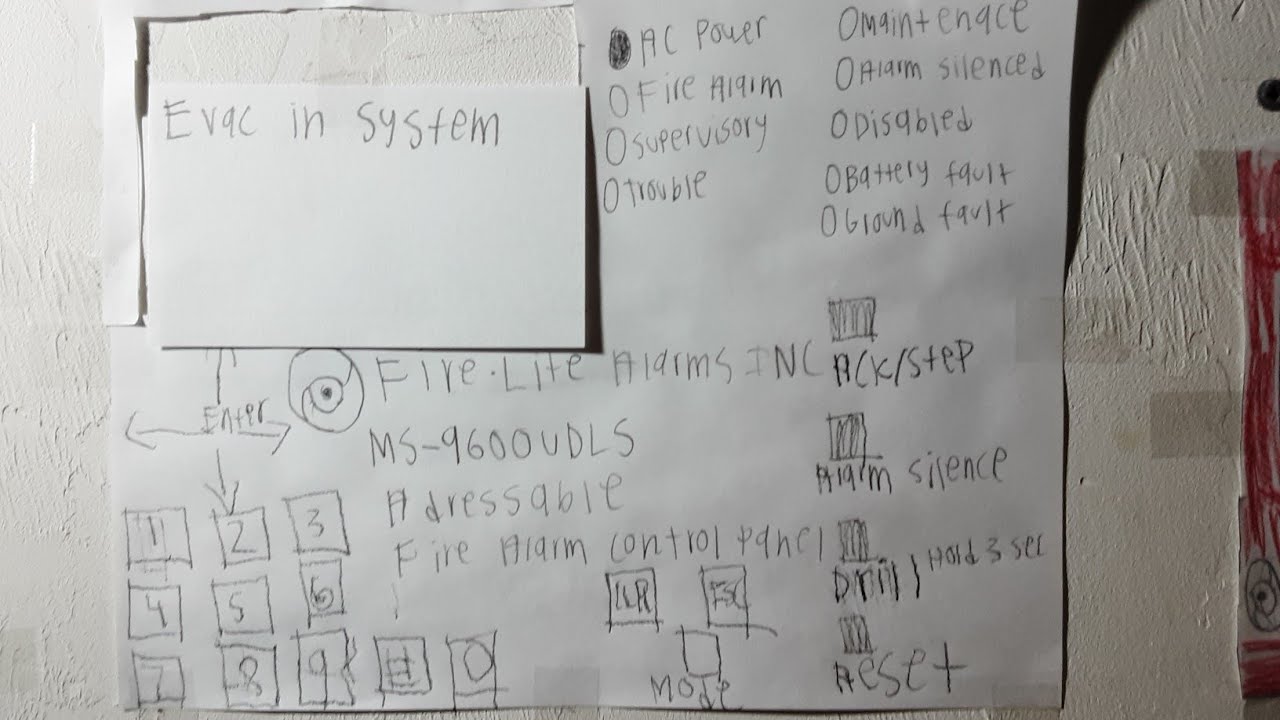 Evac in system
AC Power
Fire Alarm
supervisory
trouble
Maintenace
Alarm silenced
Disabled
Battery fault
Ground fault
Enter
Fire·Lite Alarms INC
MS-9600UDLS
Adressable
Fire Alarm control panel
ACK/Step
Alarm silence
Drill Hold 3 sec
Reset
1 2 3
4 5 6
7 8 9 # 0
ESC
Mode